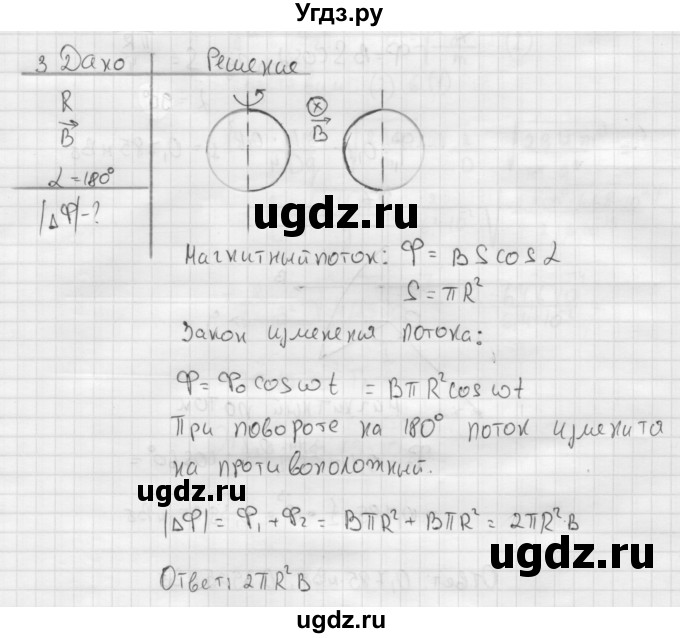 Угдз.ру
3 Дано Решение
R
B
B
α = 180°
|ΔΦ| - ?
ugdz.ru
Магнитный поток: Φ = BS cos α
S = πR²
Закон изменения потока:
Φ = Φ₀ cos ωt = BπR² cos ωt
При повороте на 180° поток изменится
на противоположный.
ugdz.ru
|ΔΦ| = Φ₁ + Φ₂ = BπR² + BπR² = 2πR²B
ugdz.ru
Ответ: 2πR²B
ugdz.ru
ugdz.ru